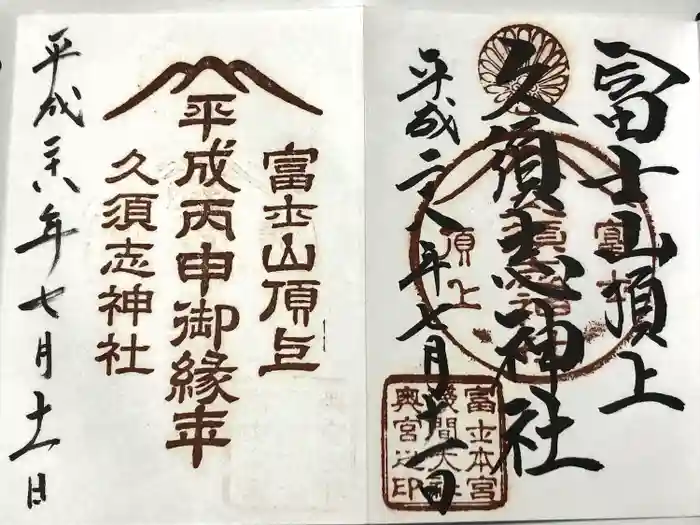 冨士山頂上
久須志神社
平成二八年七月十一日
富士
頂上
富士本宮
浅間大社
奥宮之印
富士山頂上
平成丙申御縁年
久須志神社
平成二十八年七月十一日